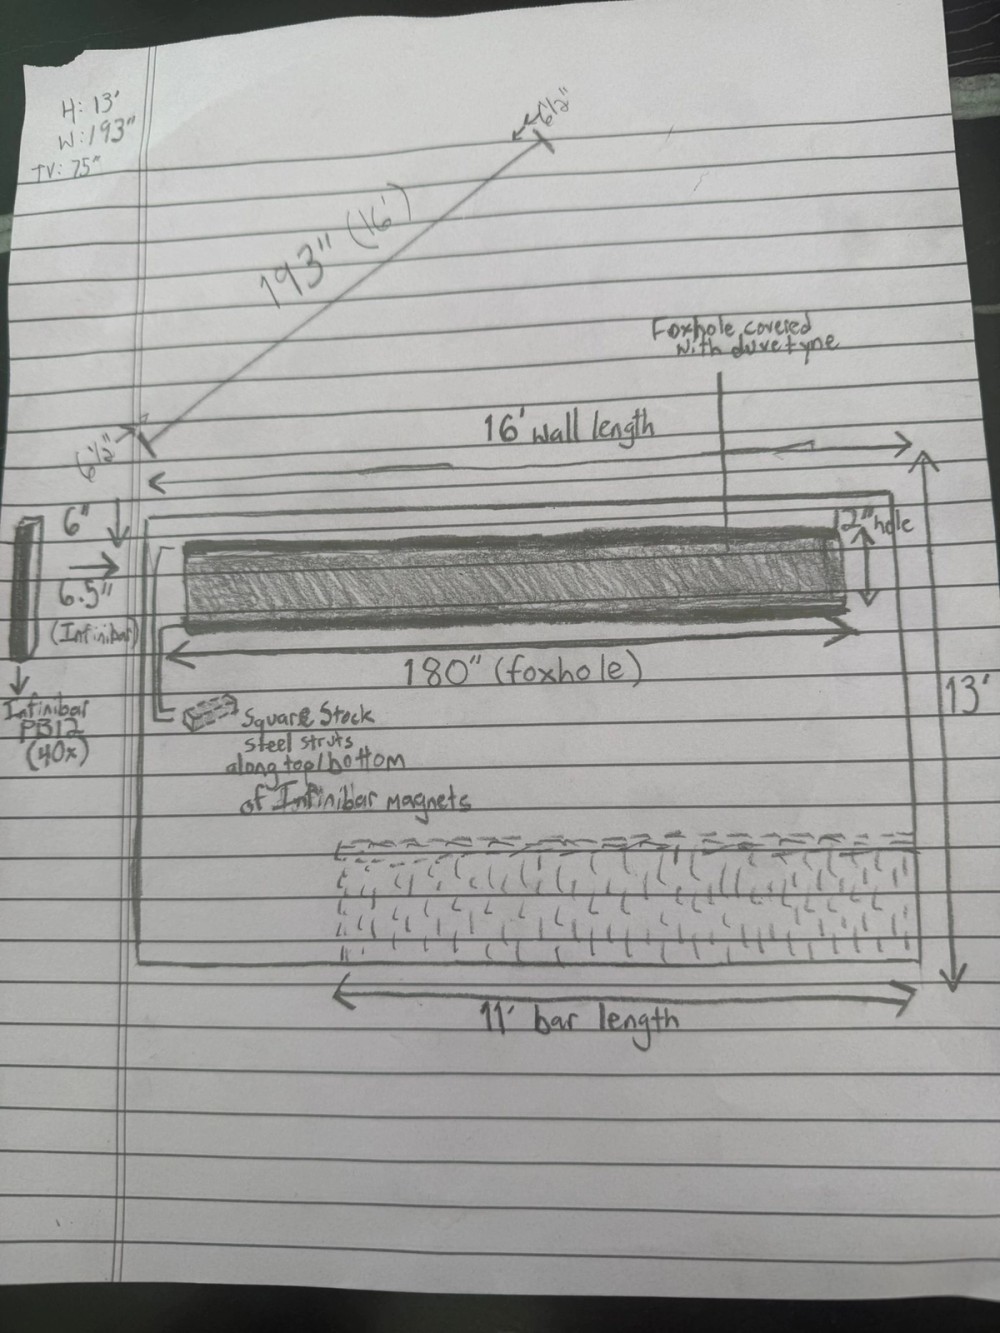 H: 13'
W: 193"
TV: 75"
6 1/2"
193" (16')
Foxhole covered
with duvetyne
16' wall length
6 1/2"
6"
12" hole
6.5"
(Infinibar)
180" (foxhole)
13'
Infinibar
PB12
(40x)
Square Stock
steel struts
along top/bottom
of Infinibar magnets
11' bar length